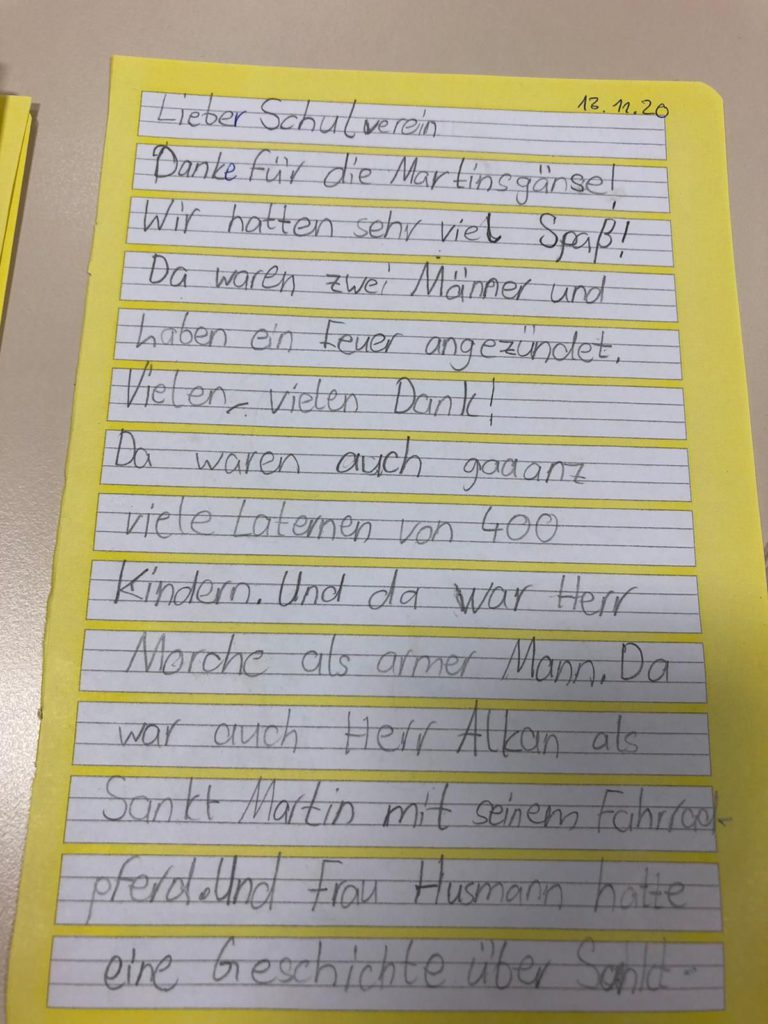 13.11.20
Lieber Schulverein
Danke für die Martinsgänse!
Wir hatten sehr viel Spaß!
Da waren zwei Männer und
haben ein Feuer angezündet.
Vielen, vielen Dank!
Da waren auch gaaanz
viele Laternen von 400
Kindern. Und da war Herr
Morche als armer Mann. Da
war auch Herr Alkan als
Sankt Martin mit seinem Fahrrad-
pferd. Und Frau Husmann hatte
eine Geschichte über Sankt-